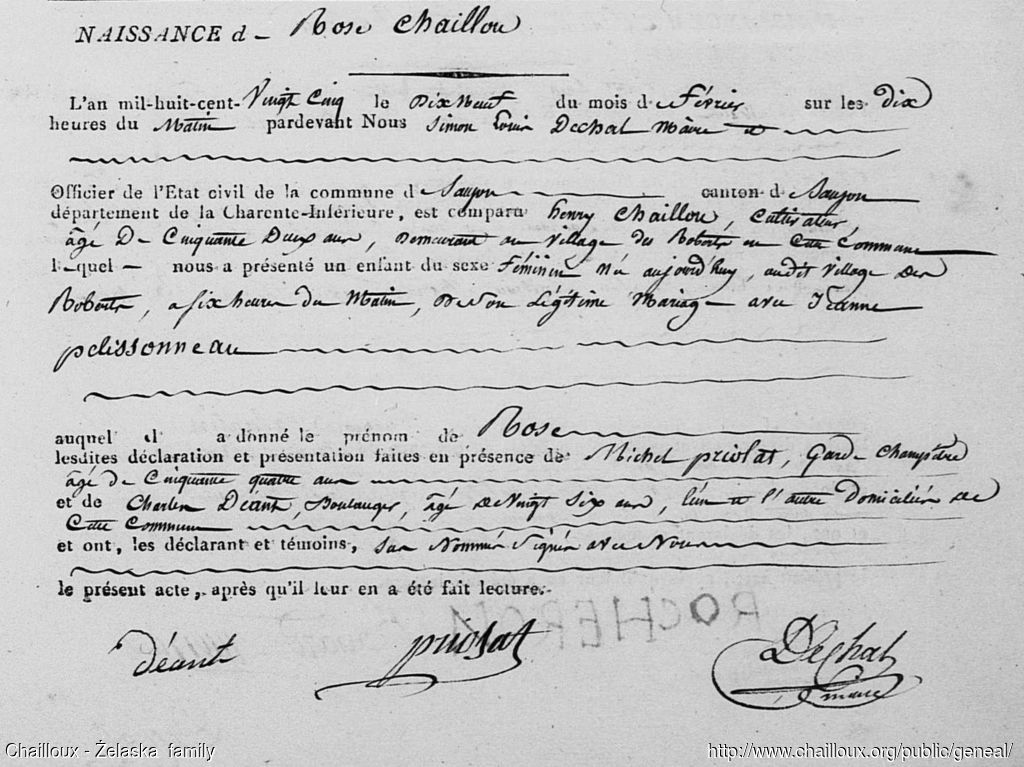 NAISSANCE d Rose Chaillou
L'an mil-huit-cent- Vingt Cinq le Dix Neuf du mois d e Février sur les Dix
heures du Matin pardevant Nous Simon Louis Dechat Maire et
Officier de l'Etat civil de la commune d e Saujon canton d e Saujon
département de la Charente-Inférieure, est comparu henry Chaillou, Cultivateur
âgé De Cinquante Deux ans, Demeurant au village des Roberts en Cette Commune
lequel nous a présenté un enfant du sexe féminin né aujourd'huy, audit village des
Roberts, a six heures du Matin, De son Légitime Mariage avec Jeanne
pelissonneau
auquel il a donné le prénom de Rose
lesdites déclaration et présentation faites en présence de Michel priolat, Garde Champêtre
âgé de Cinquante quatre ans
et de Charles Déant, Boulanger, âgé de Vingt Six ans, l'un et l'autre Domiciliés de
Cette Commune
et ont, les déclarant et témoins, Signés avec Nous
le présent acte, après qu'il leur en a été fait lecture.
déant priolat Dechat
maire
Chailloux - Żelaska family http://www.chailloux.org/public/geneal/